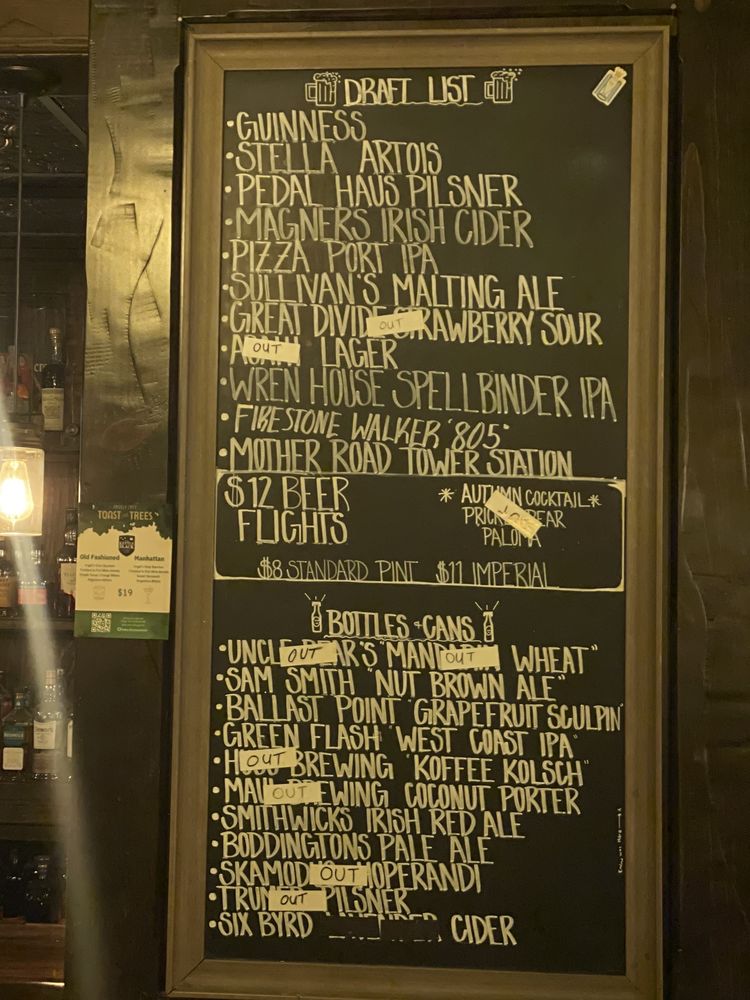 DRAFT LIST
• GUINNESS
• STELLA ARTOIS
• PEDAL HAUS PILSNER
• MAGNERS IRISH CIDER
• PIZZA PORT IPA
• SULLIVAN'S MALTING ALE
• GREAT DIVIDE OUT STRAWBERRY SOUR
• OUT LAGER
• WREN HOUSE SPELLBINDER IPA
• FIRESTONE WALKER '805'
• MOTHER ROAD TOWER STATION
$12 BEER
FLIGHTS
* AUTUMN COCKTAIL *
PRICKLY PEAR
PALOMA
$8 STANDARD PINT $11 IMPERIAL
BOTTLES & CANS
• UNCLE OUT BEAR'S "MANDARIN OUT WHEAT"
• SAM SMITH "NUT BROWN ALE"
• BALLAST POINT "GRAPEFRUIT SCULPIN"
• GREEN FLASH "WEST COAST IPA"
• OUT BREWING "KOFFEE KOLSCH"
• MAUI OUT BREWING COCONUT PORTER
• SMITHWICKS IRISH RED ALE
• BODDINGTONS PALE ALE
• SKAMOD OUT HOPERANDI
• TRUMER OUT PILSNER
• SIX BYRD CIDER
TOAST THE TREES
Old Fashioned Manhattan
$19